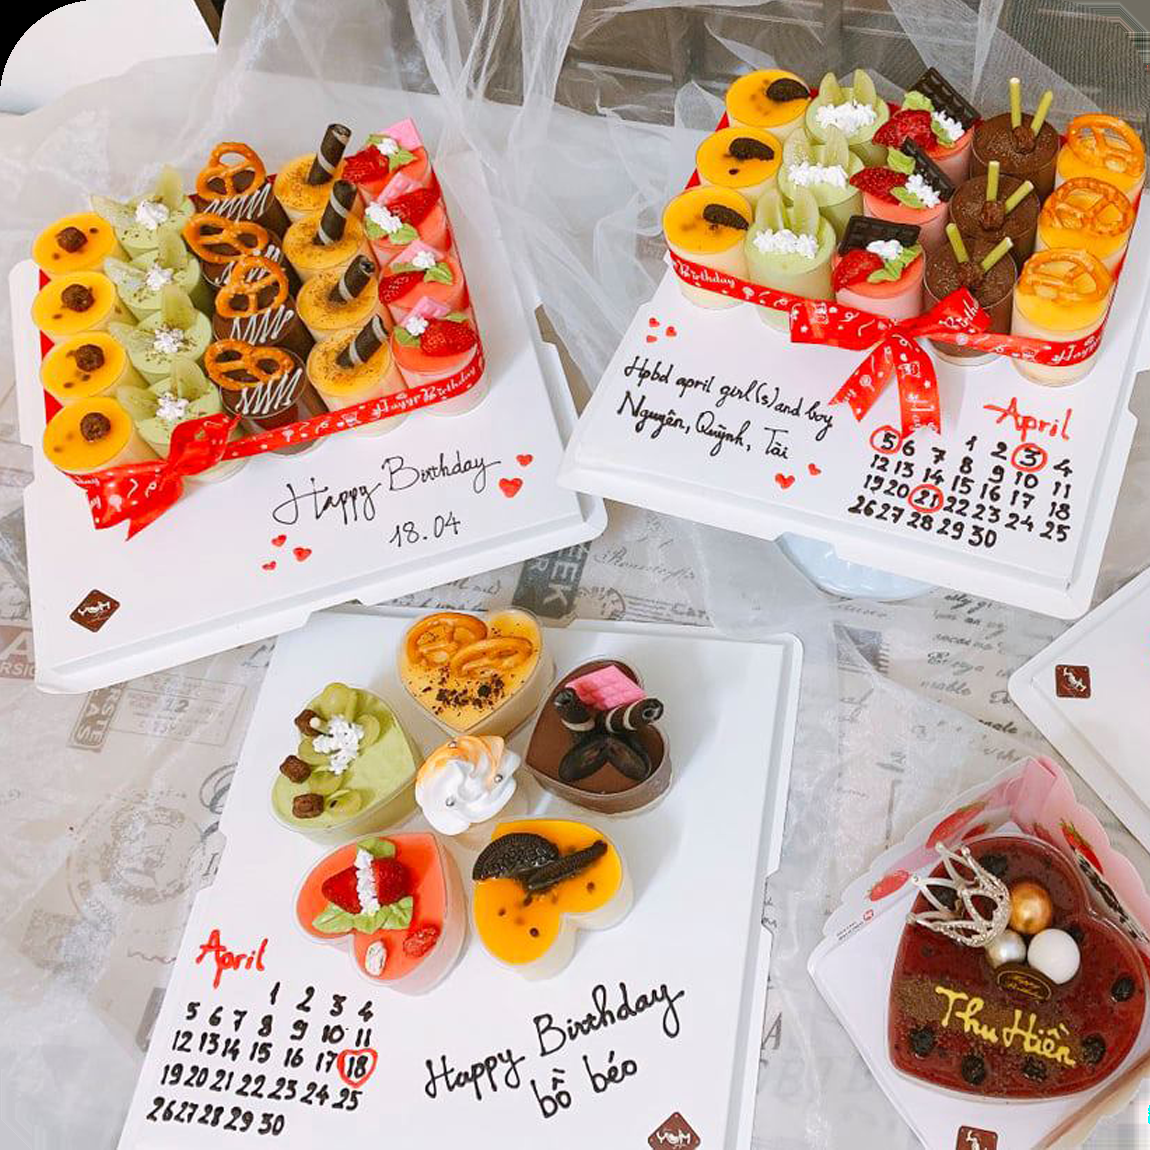 Happy Birthday
18.04
YOM
Birthday
Hpbd april girl(s) and boy
Nguyên, Quỳnh, Tài
April
1 2 3 4
5 6 7 8 9 10 11
12 13 14 15 16 17 18
19 20 21 22 23 24 25
26 27 28 29 30
April
1 2 3 4
5 6 7 8 9 10 11
12 13 14 15 16 17 18
19 20 21 22 23 24 25
26 27 28 29 30
Happy Birthday
bồ béo
YOM
Thu Hiền